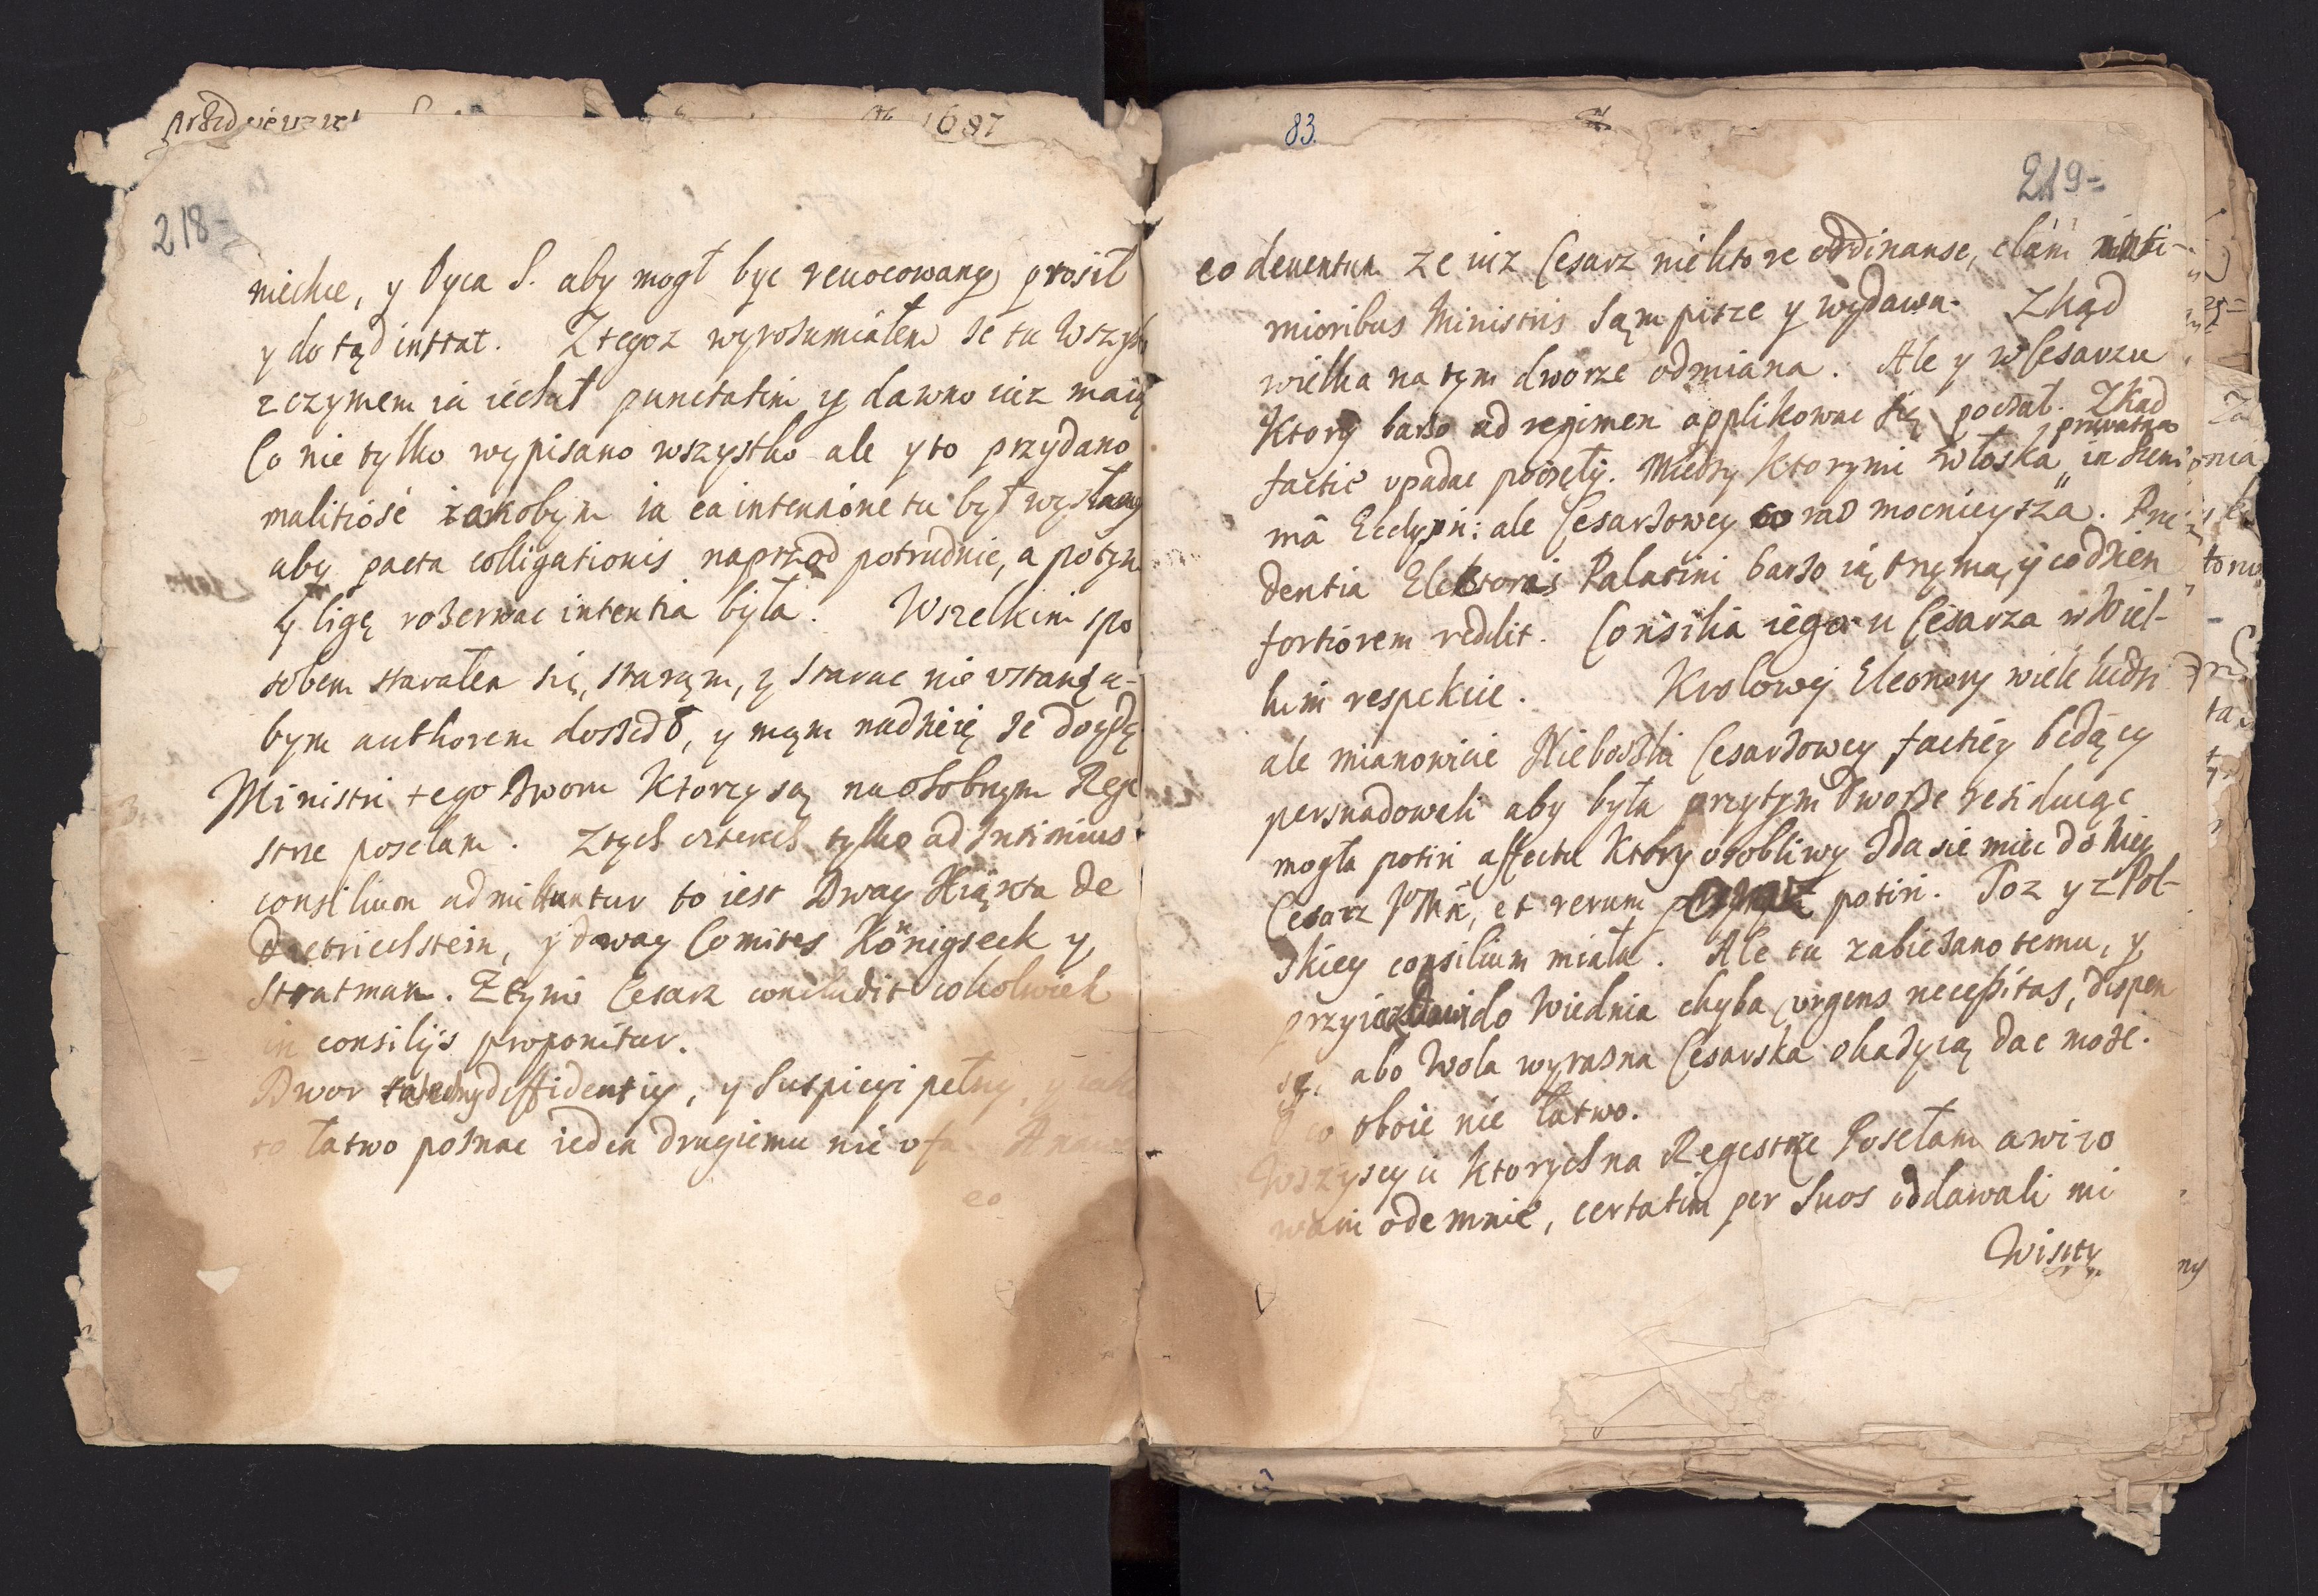 1687
218-
niechce, y Oyca S. aby mogł byc reuocowany prosił
y do tąd instat. Ztegoz wyrozumiałem ze tu Wszys
zczymem ia iechał punctatim y dawno iuz maią
Co nie tylko wypisano wszystko ale y to przydano
malitiosé iakobym ia ea intentione tu był wysłany
aby pacta colligationis naprzod potrudnic, a potym
y ligę rozerwac intentia była. Wszelkim spo
sobem starałem się, staram, y starac nie ustanę a-
bym authorem doszedł, y mam nadzieię ze doydę
3. Ministri tego Dworu Ktorzy są na osobnym Rege
strze poselam. Ztych czterech tylko ad Intimius
consilium admittuntur to iest Dway Xiązta de
Dietrichstein, y dway Comites Königseck y
Stratman. Ztymi Cesarz concludit cokolwiek
in consilijs proponitur.
Dwor diffidentiy, y Suspicyi pełny,
to łatwo poznac ieden drugiemu nie ufa
eo
83.
219-
eo deuentum ze iuz Cesarz niektore ordinanse, clam inti-
mioribus Ministris Sam pisze y wydawa. Zkąd
wielka na tym dworze odmiana. Ale y w Cesarzu
Ktory barzo ad regimen applikowac się poczał. Zkąd
factie upadac poczęły. Miedzy Ktorymi włoska
priwatna
ma Eclypsi: ale Cesarzowey co raz mocnieysza.
dentia Electoris Palatini barzo ią trzyma, y codzien
fortiorem reddit. Consilia iego u Cesarza w Wiel-
kim respekcie. Krolowey Eleonory wiele ludzi
ale mianowicie Nieboszki Cesarzowey factiey będący
persuadowali aby była przytym Dworze residuiąc
mogła potiri affectu Ktory osobliwy zda sie miec do Niey
Cesarz JoMc, et rerum potiri. Toz y z Pol-
skiey consilium miała. Ale tu zabiezano temu, y
do Wiednia chyba urgens necessitas, dispen
są, abo Wola wyrazna Cesarska okazyią dac moze.
co oboie nie łatwo.
Wszyscy u Ktorych na Regestrze Posełam awizo
wani odemnie, certatim per Suos oddawali mi
Wisity